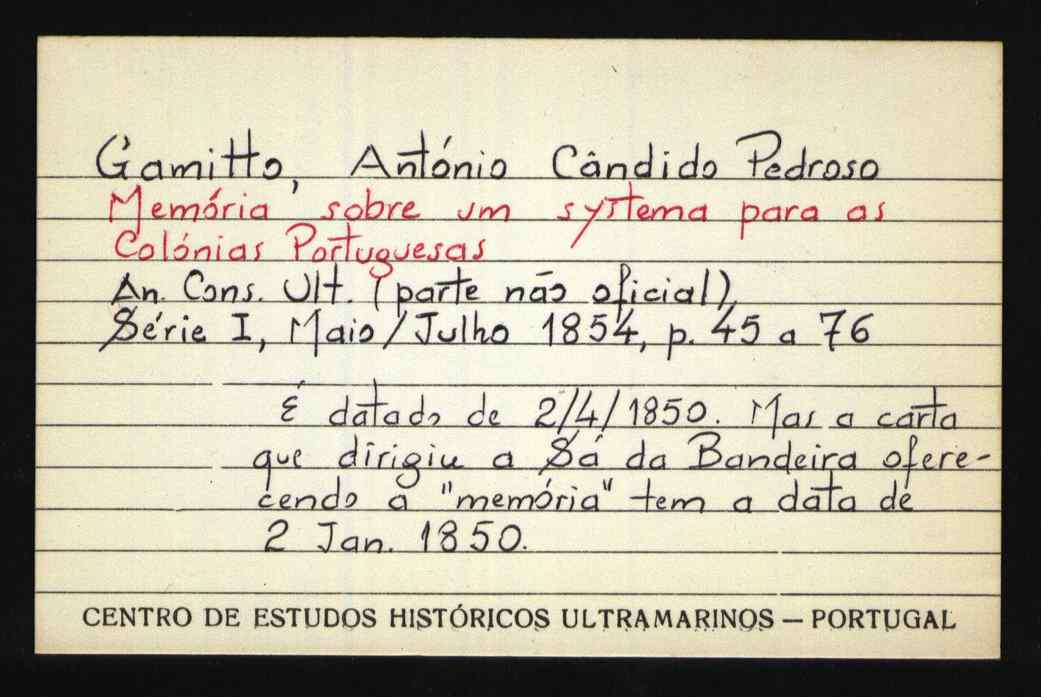 Gamitto, António Cândido Pedroso
Memória sobre um systema para as
Colónias Portuguesas
An. Cons. Ult. (parte não oficial),
Série I, Maio/Julho 1854, p. 45 a 76
É datado de 2/4/1850. Mas a carta
que dirigiu a Sá da Bandeira ofere-
cendo a "memória" tem a data de
2 Jan. 1850.
CENTRO DE ESTUDOS HISTÓRICOS ULTRAMARINOS — PORTUGAL